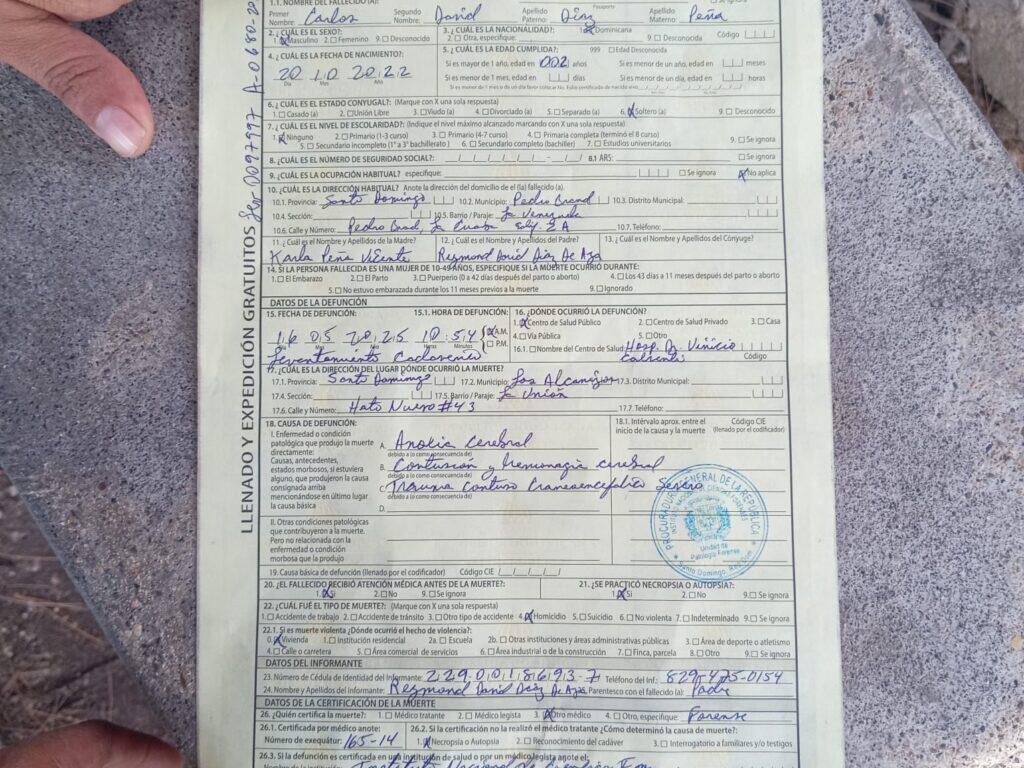 1.1. NOMBRE DEL FALLECIDO(A):
Primer Nombre: Carlos Segundo Nombre: David Apellido Paterno: Díaz Apellido Materno: Peña
2. ¿CUÁL ES EL SEXO? 3. ¿CUÁL ES LA NACIONALIDAD? Dominicana
1. Masculino 2. Femenino 9. Desconocido 2. Otra, especifique: 9. Desconocido Código
4. ¿CUÁL ES LA FECHA DE NACIMIENTO? 5. ¿CUÁL ES LA EDAD CUMPLIDA? 999 Edad Desconocida
20 10 2022 Si es mayor de 1 año, edad en 002 años Si es menor de un año, edad en meses
Día Mes Año Si es menor de 1 mes, edad en días Si es menor de un día, edad en horas
6. ¿CUÁL ES EL ESTADO CONYUGAL? (Marque con X una sola respuesta)
1. Casado (a) 2. Unión Libre 3. Viudo (a) 4. Divorciado (a) 5. Separado (a) 6. X Soltero (a) 9. Desconocido
7. ¿CUÁL ES EL NIVEL DE ESCOLARIDAD? (Indique el nivel máximo alcanzado marcando con X una sola respuesta)
1. X Ninguno 2. Primario (1-3 curso) 3. Primario (4-7 curso) 4. Primaria completa (terminó el 8 curso) 9. Se ignora
5. Secundario incompleto (1° a 3° bachillerato) 6. Secundario completo (bachiller) 7. Estudios universitarios
8. ¿CUÁL ES EL NÚMERO DE SEGURIDAD SOCIAL? 8.1 ARS: Se ignora
9. ¿CUÁL ES LA OCUPACIÓN HABITUAL? especifique: Se ignora X No aplica
10. ¿CUÁL ES LA DIRECCIÓN HABITUAL? Anote la dirección del domicilio de el (la) fallecido (a).
10.1. Provincia: Santo Domingo 10.2. Municipio: Pedro Brand 10.3. Distrito Municipal:
10.4. Sección: 10.5. Barrio / Paraje: La Venezuela
10.6. Calle y Número: Pedro Brand, La Cuaba 2A 10.7. Teléfono:
11. ¿Cuál es el Nombre y Apellidos de la Madre? 12. ¿Cuál es el Nombre y Apellidos del Padre? 13. ¿Cuál es el Nombre y Apellidos del Cónyuge?
Karla Peña Vicente Reymond David Díaz De Aza
14. SI LA PERSONA FALLECIDA ES UNA MUJER DE 10-49 AÑOS, ESPECIFIQUE SI LA MUERTE OCURRIÓ DURANTE:
1. El Embarazo 2. El Parto 3. Puerperio (0 a 42 días después del parto o aborto) 4. Los 43 días a 11 meses después del parto o aborto
5. No estuvo embarazada durante los 11 meses previos a la muerte 9. Ignorado
DATOS DE LA DEFUNCIÓN
15. FECHA DE DEFUNCIÓN: 15.1. HORA DE DEFUNCIÓN: 16. ¿DÓNDE OCURRIÓ LA DEFUNCIÓN?
1. X Centro de Salud Público 2. Centro de Salud Privado 3. Casa
16 05 2025 10:54 X A.M. 4. Vía Pública 5. Otro
Día Mes Año Horas Minutos P.M. 16.1. Nombre del Centro de Salud: Hosp. Dr. Vinicio
Levantamiento Cadavérico Calventi Código
17. ¿CUÁL ES LA DIRECCIÓN DEL LUGAR DÓNDE OCURRIÓ LA MUERTE?
17.1. Provincia: Santo Domingo 17.2. Municipio: Los Alcarrizos 17.3. Distrito Municipal:
17.4. Sección: 17.5. Barrio / Paraje: La Unión
17.6. Calle y Número: Hato Nuevo #43 17.7. Teléfono:
18. CAUSA DE DEFUNCIÓN: 18.1. Intérvalo aprox. entre el inicio de la causa y la muerte Código CIE (llenado por el codificador)
I. Enfermedad o condición patológica que produjo la muerte directamente:
A. Anoxia cerebral
debido a (o como consecuencia de)
Causas, antecedentes, estados morbosos, si estuviera alguno, que produjeron la causa consignada arriba mencionándose en último lugar la causa básica
B. Contusión y hemorragia cerebral
debido a (o como consecuencia de)
C. Trauma Contuso Craneoencefálico Severo
debido a (o como consecuencia de)
D.
II. Otras condiciones patológicas que contribuyeron a la muerte. Pero no relacionada con la enfermedad o condición morbosa que la produjo
PROCURADURÍA GENERAL DE LA REPÚBLICA
Unidad de Patología Forense
Santo Domingo, Rep. Dom.
19. Causa básica de defunción (llenado por el codificador) Código CIE
20. ¿EL FALLECIDO RECIBIÓ ATENCIÓN MÉDICA ANTES DE LA MUERTE?: 21. ¿SE PRACTICÓ NECROPSIA O AUTOPSIA?:
1. X Si 2. No 9. Se ignora 1. X Si 2. No 9. Se ignora
22. ¿CUÁL FUÉ EL TIPO DE MUERTE? (Marque con X una sola respuesta)
1. Accidente de trabajo 2. Accidente de tránsito 3. Otro tipo de accidente 4. X Homicidio 5. Suicidio 6. No violenta 7. Indeterminado 9. Se ignora
22.1. Si es muerte violenta ¿Dónde ocurrió el hecho de violencia?:
0. X Vivienda 1. Institución residencial 2a. Escuela 2b. Otras instituciones y áreas administrativas públicas 3. Área de deporte o atletismo
4. Calle o carretera 5. Área comercial de servicios 6. Área industrial o de la construcción 7. Finca, parcela 8. Otro 9. Se ignora
DATOS DEL INFORMANTE
23. Número de Cédula de Identidad del Informante: 229.0018693-7 Teléfono del Inf.: 829-475-0154
24. Nombre y Apellidos del informante: Reymond David Díaz De Aza Parentesco con el fallecido (a): Padre
DATOS DE LA CERTIFICACIÓN DE LA MUERTE
26. ¿Quién certifica la muerte? 1. Médico tratante 2. Médico legista 3. X Otro médico 4. Otro, especifique: Forense
26.1. Certificada por médico anote: 26.2. Si la certificación no la realizó el médico tratante ¿Cómo determinó la causa de muerte?:
Número de exequátur: 165-14 1. X Necropsia o Autopsia 2. Reconocimiento del cadáver 3. Interrogatorio a familiares y/o testigos
26.3. Si la defunción es certificada en una institución de salud o por un médico legista anote el:
LLENADO Y EXPEDICIÓN GRATUITOS
0097997 A-0680-20